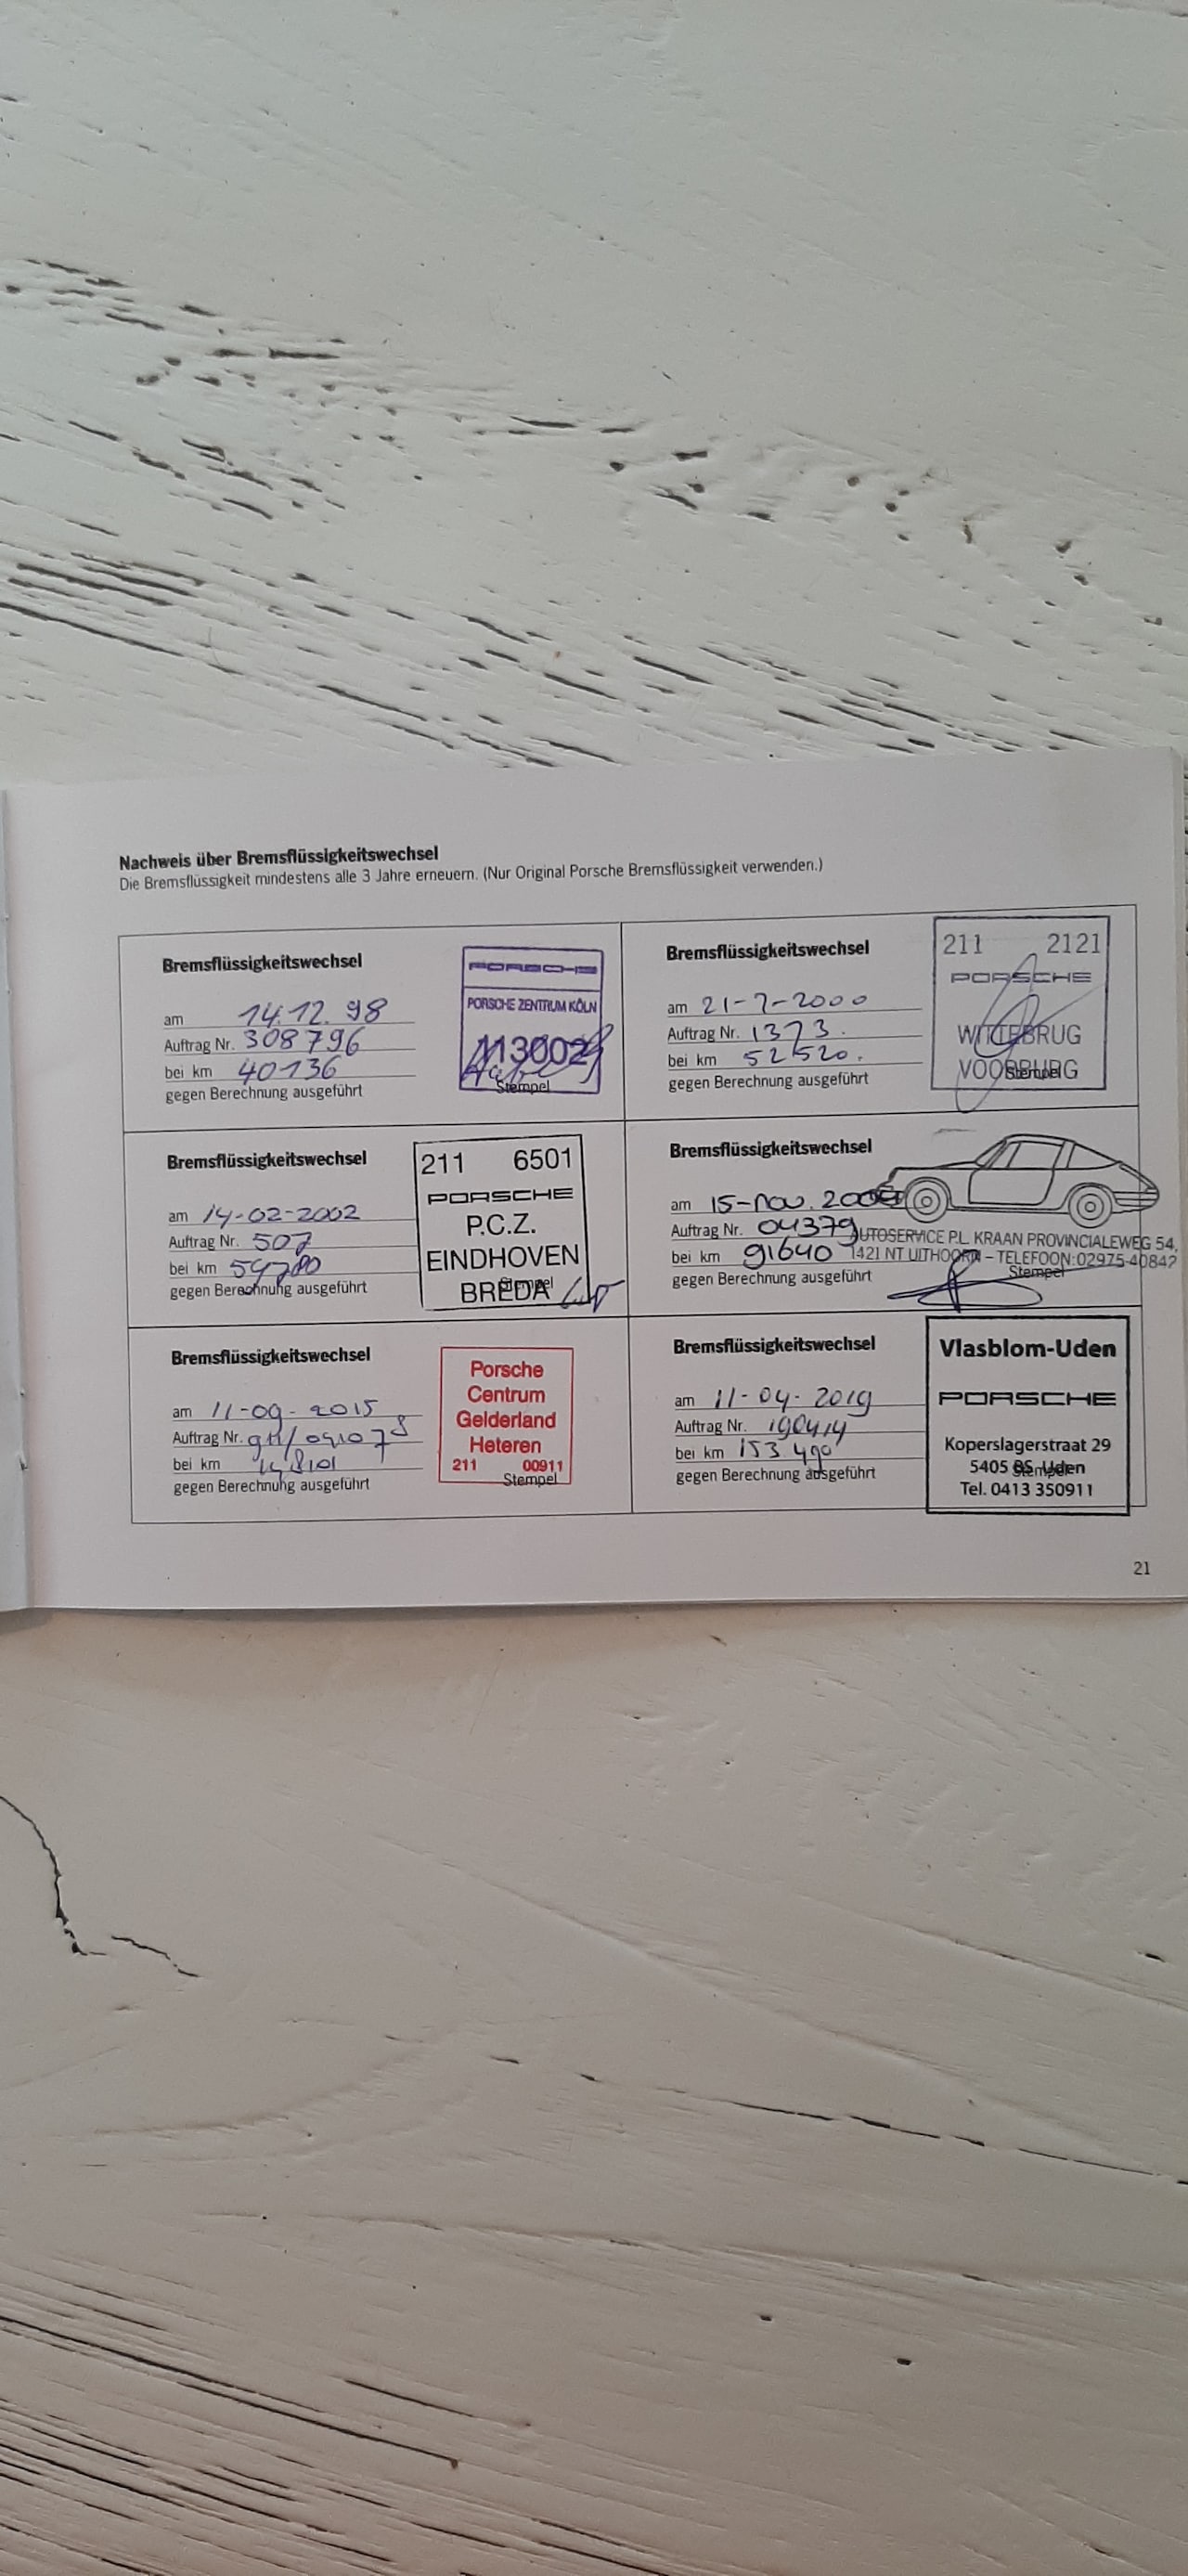 Nachweis über Bremsflüssigkeitswechsel
Die Bremsflüssigkeit mindestens alle 3 Jahre erneuern. (Nur Original Porsche Bremsflüssigkeit verwenden.)
Bremsflüssigkeitswechsel
am 14.12.98
Auftrag Nr. 308796
bei km 40136
gegen Berechnung ausgeführt
PORSCHE
PORSCHE ZENTRUM KÖLN
113002
Stempel
Bremsflüssigkeitswechsel
am 21-7-2000
Auftrag Nr. 1373.
bei km 52520.
gegen Berechnung ausgeführt
211 2121
PORSCHE
WITTEBRUG
VOORBURG
Stempel
Bremsflüssigkeitswechsel
am 14-02-2002
Auftrag Nr. 507
bei km 59780
gegen Berechnung ausgeführt
211 6501
PORSCHE
P.C.Z.
EINDHOVEN
BREDA
Stempel
Bremsflüssigkeitswechsel
am 15-nov.
Auftrag Nr. 04379
bei km 91640
gegen Berechnung ausgeführt
AUTOSERVICE P.L. KRAAN PROVINCIALEWEG 54,
1421 NT UITHOORN – TELEFOON: 02975-40842
Stempel
Bremsflüssigkeitswechsel
am 11-09-2015
Auftrag Nr.
bei km 148101
gegen Berechnung ausgeführt
Porsche
Centrum
Gelderland
Heteren
211 00911
Stempel
Bremsflüssigkeitswechsel
am 11-04-2019
Auftrag Nr. 190414
bei km 153.490
gegen Berechnung ausgeführt
Vlasblom-Uden
PORSCHE
Koperslagerstraat 29
5405 BS Uden
Stempel
Tel. 0413 350911
21